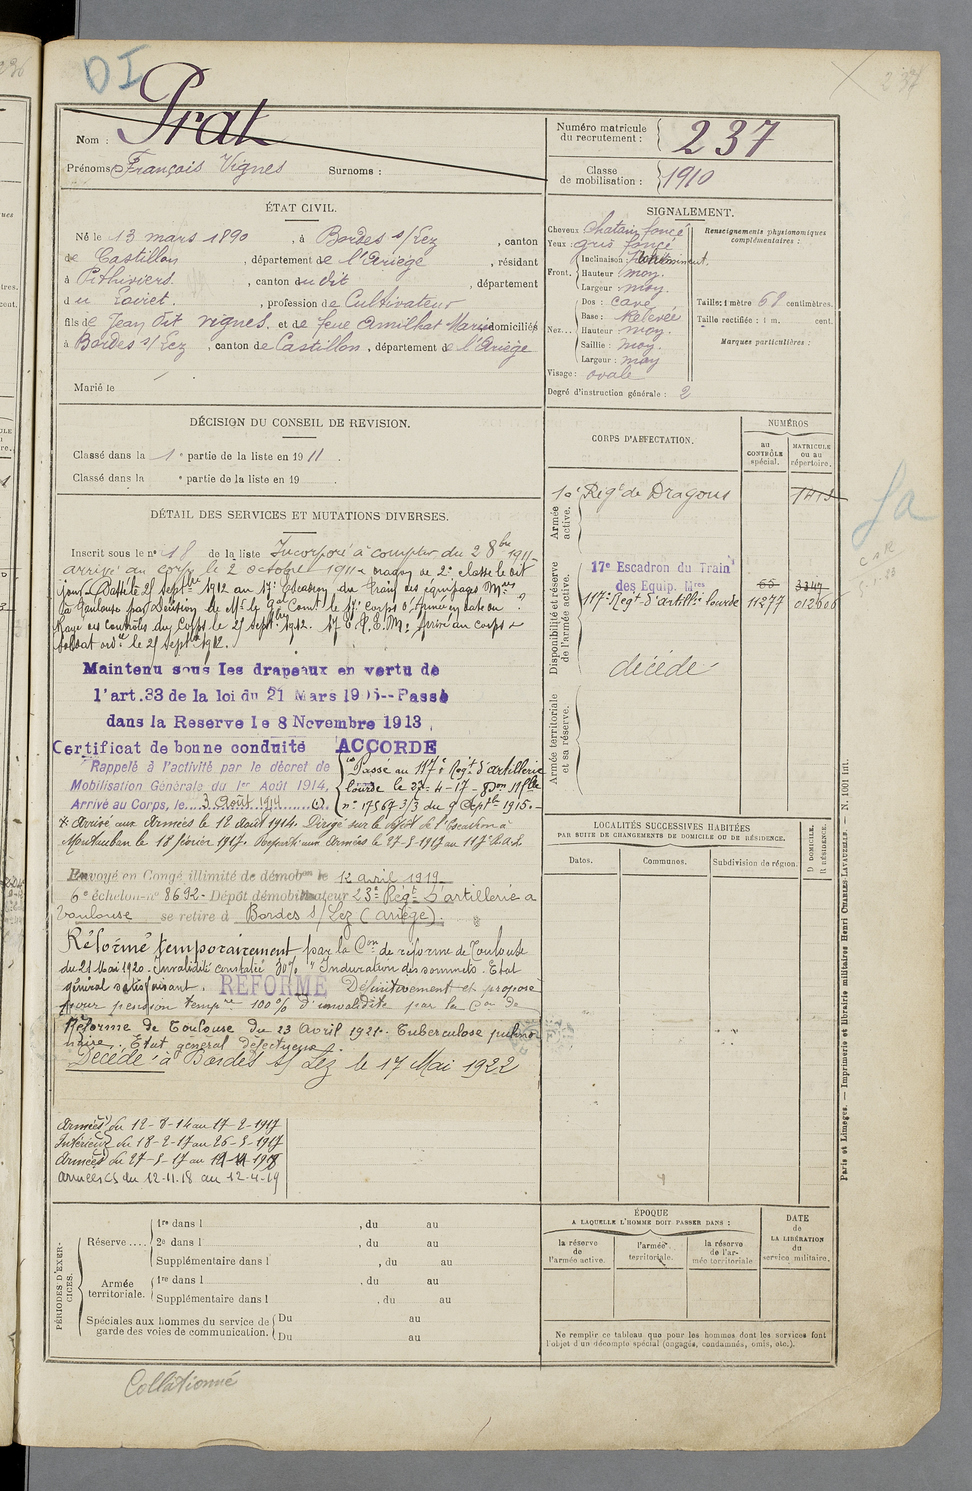 DI
237
Nom : Prat
Prénoms : François Vignes Surnoms :
Numéro matricule du recrutement : 237
Classe de mobilisation : 1910
ÉTAT CIVIL.
Né le 13 mars 1890, à Bordes s/Lez, canton
de Castillon, département de l'Ariège, résidant
à Pithiviers, canton du dit, département
du Loiret, profession de Cultivateur
fils de Jean dit Vignes, et de feue Amilhat Marie domiciliés
à Bordes s/Lez, canton de Castillon, département de l'Ariège
Marié le
SIGNALEMENT.
Cheveux Chatain foncé
Yeux : gris foncé
Front. Inclinaison :
Hauteur : moy.
Largeur : moy.
Nez... Dos : cavé
Base : Relevée
Hauteur : moy.
Saillie : moy.
Largeur : moy
Visage : ovale
Degré d'instruction générale : 2
Renseignements physionomiques complémentaires :
Taille : 1 mètre 68 centimètres.
Taille rectifiée : 1 m. cent.
Marques particulières :
DÉCISION DU CONSEIL DE REVISION.
Classé dans la 1e partie de la liste en 1911.
Classé dans la e partie de la liste en 19
DÉTAIL DES SERVICES ET MUTATIONS DIVERSES.
Inscrit sous le n° 18 de la liste Incorporé à compter du 2 8bre 1911
arrivé au corps le 2 octobre 1911 & dragon de 2e classe le dit
jour. Passé le 21 septbre 1912 au 17e Escadron du Train des équipages Mres
à Toulouse par Décision de Mr le Gal Comt le 17e Corps d'Armée en date du ?
Rayé des contrôles du Corps le 21 septbre 1912. 17e E.T.E.M. arrivé au corps &
soldat ord. le 21 septbre 1912.
Maintenu sous les drapeaux en vertu de
l'art.33 de la loi du 21 Mars 1905--Passé
dans la Reserve le 8 Novembre 1913
Certificat de bonne conduite ACCORDE
Rappelé à l'activité par le décret de
Mobilisation Générale du 1er Août 1914,
Arrivé au Corps, le 3 Août 1914
Passé au 117e Regt d'artillerie
lourde le 27-4-17 - 
n° 17567 3/3 du 9 Septbre 1915.
Arrivé aux Armées le 12 Août 1914. Dirigé sur le dépôt de l'Escadron à
Montauban le 18 février 1917. Reparti aux Armées le 27-5-1917 au 117 R.A.L.
Envoyé en Congé illimité de démobon le 12 avril 1919
6e échelon n° 8692 - Dépôt démobilisateur 23e Régt d'artillerie à
Toulouse se retire à Bordes s/Lez (Ariège).
Réformé temporairement par la Con de réforme de Toulouse
du 21 Mai 1920. Invalidité constatée 30% "Induration des sommets. Etat
général satisfaisant. RÉFORMÉ Définitivement et proposé
pour pension tempre 100% d'invalidité par la Con de
Réforme de Toulouse du 13 Avril 1921. Tuberculose pulmo-
naire. Etat général défectueux.
Décédé à Bordes s/Lez le 17 Mai 1922
Armées du 12-8-14 au 17-2-1917
Intérieur du 18-2-17 au 26-5-1917
Armées du 27-5-17 au 11-11-1918
Armées CS du 12-11-18 au 12-4-19
CORPS D'AFFECTATION.
NUMÉROS
au CONTRÔLE spécial.
MATRICULE ou au répertoire.
Armée active.
10e Regt de Dragons 1418
Disponibilité et réserve de l'armée active.
17e Escadron du Train
des Equip. Mres 65 3347
117e Regt d'artillie lourde 11277 012606
décédé
Armée territoriale et sa réserve.
LOCALITÉS SUCCESSIVES HABITÉES
PAR SUITE DE CHANGEMENTS DE DOMICILE OU DE RÉSIDENCE.
Dates. Communes. Subdivision de région.
D. DOMICILE. R. RÉSIDENCE.
PÉRIODES D'EXERCICES.
Réserve.... 1re dans l , du au
2e dans l , du au
Supplémentaire dans l , du au
Armée territoriale. 1re dans l , du au
Supplémentaire dans l , du au
Spéciales aux hommes du service de garde des voies de communication. Du au
Du au
ÉPOQUE
A LAQUELLE L'HOMME DOIT PASSER DANS :
la réserve de l'armée active.
l'armée territoriale.
la réserve de l'armée territoriale
DATE de LA LIBÉRATION du service militaire.
Ne remplir ce tableau que pour les hommes dont les services font
l'objet d'un décompte spécial (engagés, condamnés, omis, etc.).
Paris et Limoges. — Imprimerie et librairie militaires Henri CHARLES-LAVAUZELLE. — N. 1001 bis.
Collationné